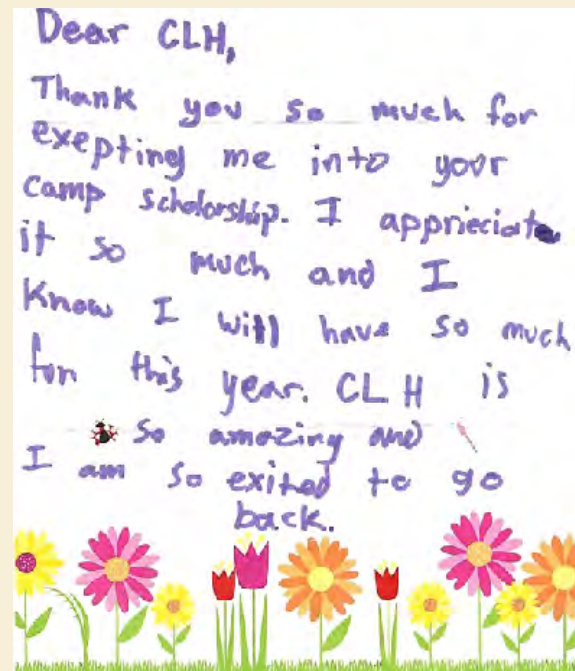 Dear CLH,
Thank you so much for
exepting me into your
camp scholarship. I apprieciate
it so much and I
know I will have so much
fun this year. CLH is
so amazing and
I am so exited to go
back.